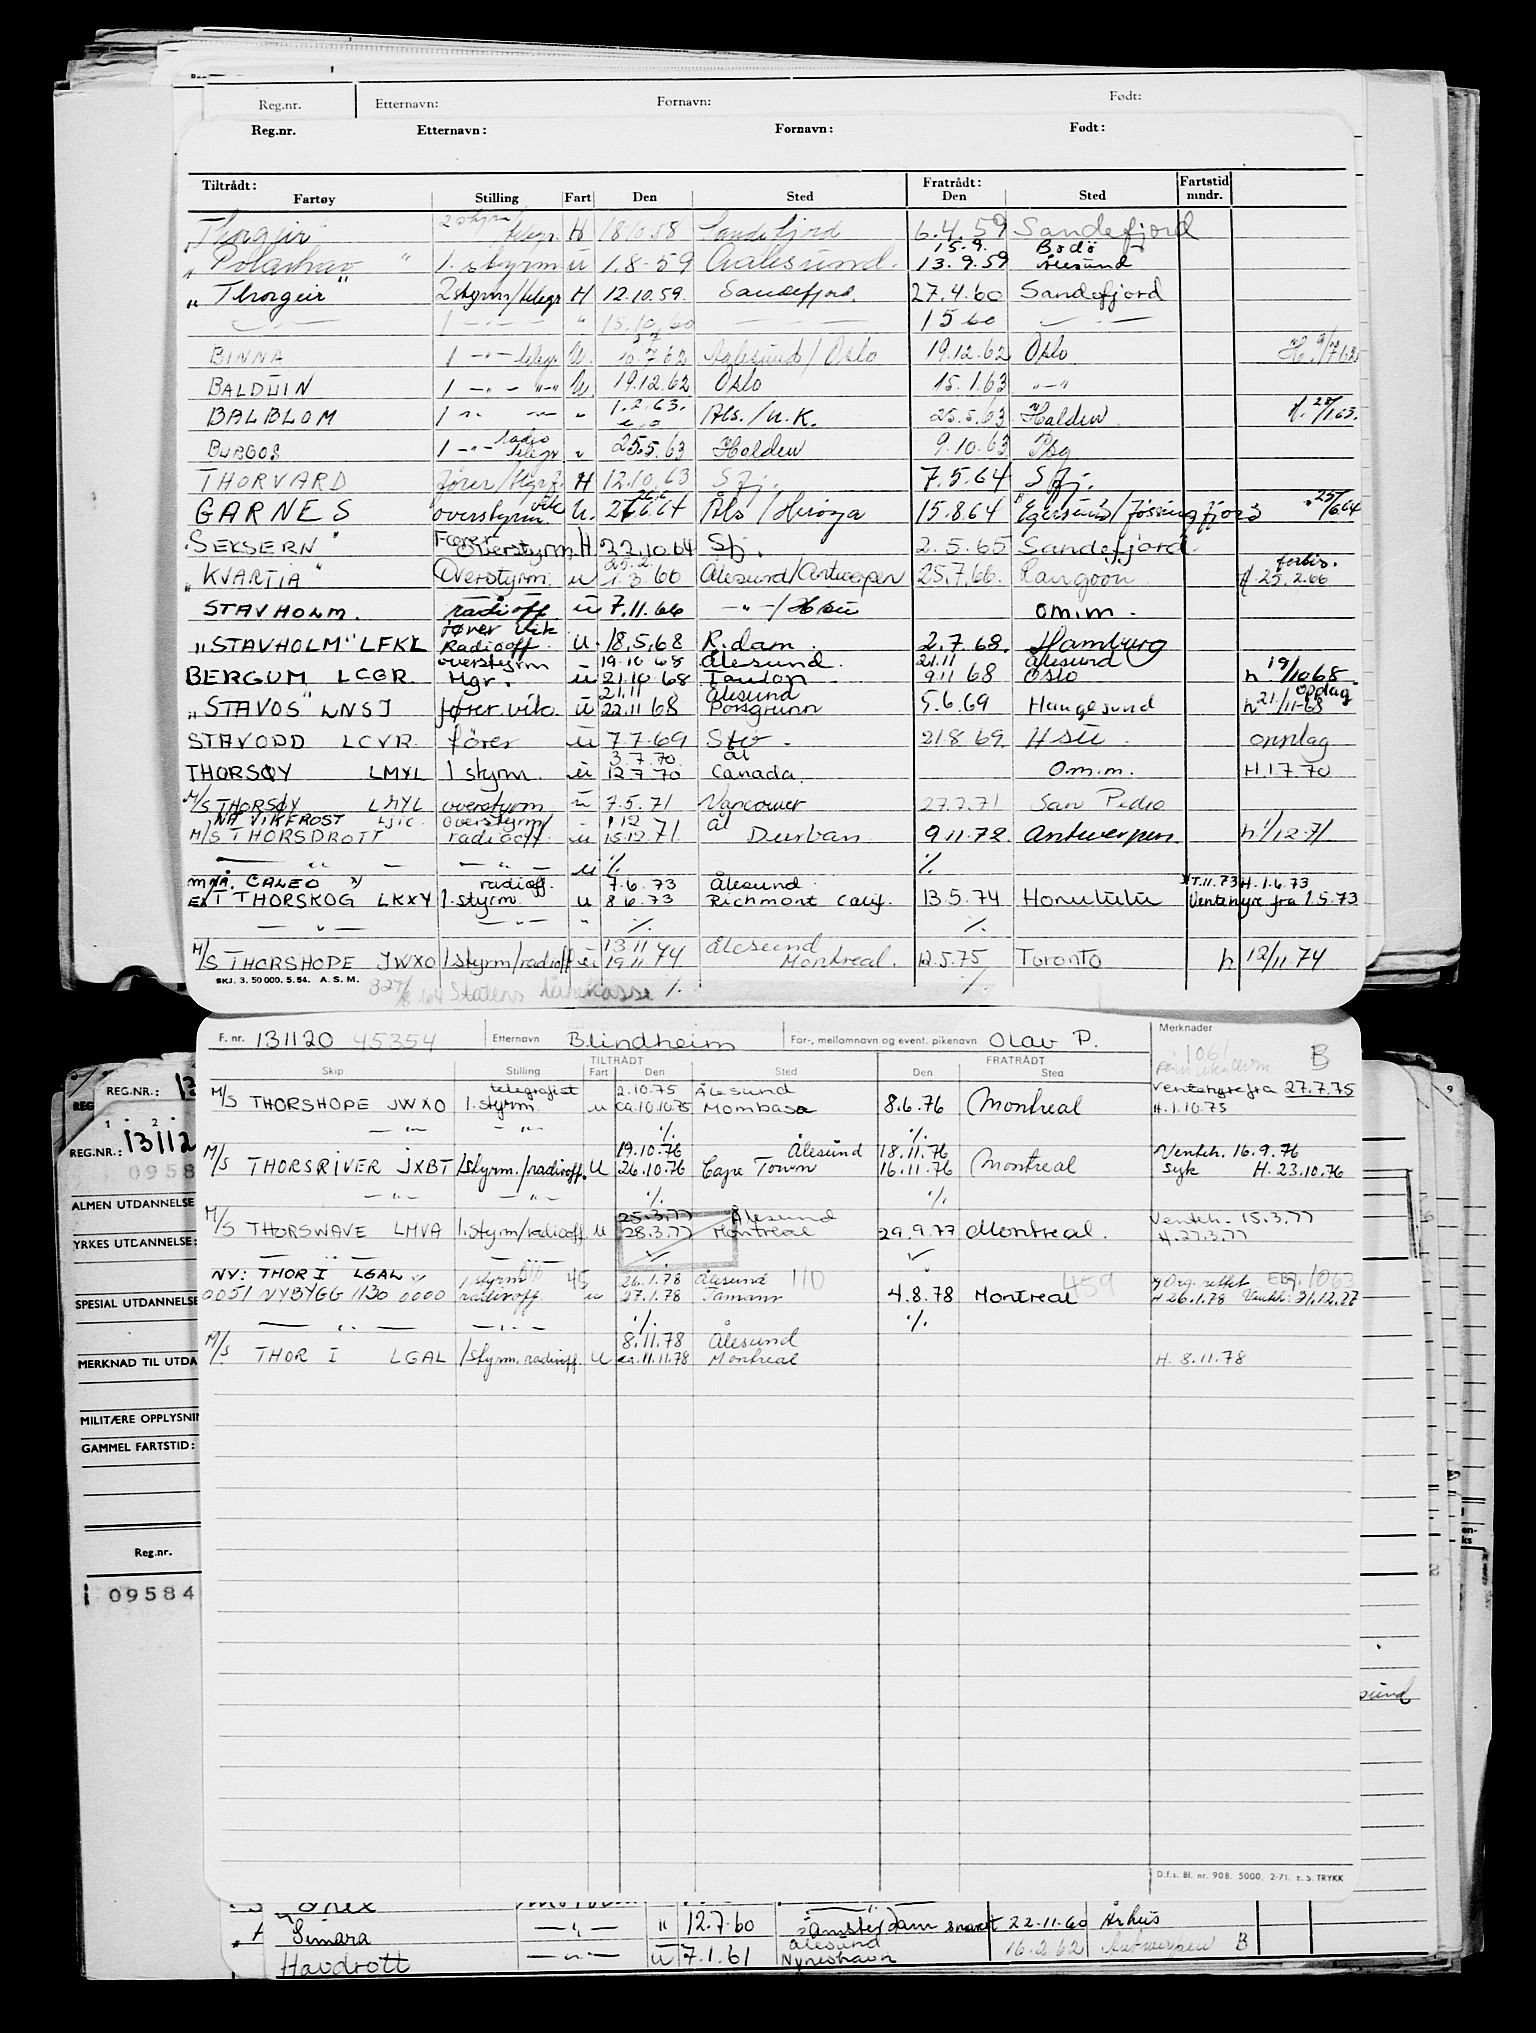 Reg.nr. Etternavn: Fornavn: Født:
Reg.nr. Etternavn: Fornavn: Født:
Tiltrådt: Fratrådt: Fartstid
Fartøy Stilling Fart Den Sted Den Sted mndr.
"Thorgeir" 2 styrm/telegr. H 18/10.58 Sandefjord 6.4.59 Sandefjord
15.9. Bodø
"Polarhav" 1. styrm u 1.8-59 Aalesund. 13.9.59 Ålesund
"Thorgeir" 2 styrm/telegr H 12.10.59. Sandefjord. 27.4.60 Sandefjord
1 15.10.60 15 60
BINNA 1 -"- telegr. U. 10.7.62 Aalesund/Oslo 19.12.62 Oslo
BALDUIN 1 -"- "-" U. 19.12.62 Oslo 15.1.63 -"-
BALBLOM 1 -"- -"- " 1.2.63. Åls./u.K. 25.5.63 Halden
BURGOS 1 -"- radio telegr " 25.5.63 Halden 9.10.63 Pbg
THORVARD fører/ H 12.10.63 Sfj. 7.5.64 Sfj.
GARNES overstyrm. vik U. Åls/Herøya 15.8.64 Egersund/Jøssingfjord 25/664
"SEKSERN" Fører Overstyrm. H 22.10.64 Sfj. 2.5.65 Sandefjord
25.2. forbis.
"KVARTIA" Overstyrm. u 1.3.66 Ålesund/Antwerpen 25.7.66. Rangoon 25.2.66
STAVHOLM. radioff u 7.11.66 -"-/ Omm.
fører vik
"STAVHOLM" LFKL Radiooff. U. 18.5.68 R.dam. 2.7.68. Hamburg
overstyrm 19.10 68 Ålesund. 21.11 Ålesund
BERGUM LCGR. u 21.10 68 9.11 68 Oslo h 19/1068.
21.11 Ålesund oppdag
"STAVOS" LNSJ fører. vik. u 22.11 68 Porsgrunn 5.6.69 Haugesund h 21/11-68
STAVODD LCVR. fører u 7.7.69 21.8.69. oppdag
3.7.70 ål
THORSØY LMYL 1 styrm. u 12.7 70 Canada. O.m.m. H.1.7 70
M/S THORSØY LMYL overstyrm u 7.5.71 Vancouver 27.7.71 San Pedro
NÅ VIKFROST LJIC. overstyrm/ 1.12 ål
M/S THORSDROTT radiooff. u 15.12.71. Durban. 9.11.72. Antwerpen h 1/12-71
— " — — " — u ./. ./.
NÅ. CALEO radioff. 7.6.73 Ålesund. H.1.6.73
THORSKOG LKXY 1. styrm. u 8.6.73 Richmont Calif. 13.5.74 Honululu Ventehyre fra 1.5.73
— " — — " — " ./. ./.
13 11 Ålesund
M/S THORSHOPE JWXO 1 styrm/radioff u 19.11.74 Montreal. 12.5.75 Toronto h 12/11.74
SKJ. 3. 50 000. 5.54. A.S.M. Statens Lånekasse ./. ./.
F. nr. 131120 45354 Etternavn Blindheim For-, mellomnavn og event. pikenavn Olav P. Merknader
1061 B
TILTRÅDT FRATRÅDT
Skip Stilling Fart Den Sted Den Sted
telegrafist 2.10.75 Ålesund Ventehyre fra 27.7.75
M/S THORSHOPE JWXO 1.styrm. u ca.10.10.75 Mombasa 8.6.76 Montreal H.1.10.75
— " — — " — ./. ./.
19.10.76 Ålesund 18.11.76 Venteh. 16.9.76
M/S THORSRIVER JXBT 1styrm./radiooff. U 26.10.76 Cape Town 16.11.76 Montreal Syk H. 23.10.76
— " — — " — ./. ./.
25.3.77 Ålesund Venteh. 15.3.77
M/S THORSWAVE LMVA 1.styrm/radiooff U 28.3.77 Montreal 29.9.77 Montreal. H.27.3.77
NY: THOR I LGAL 1 styrm 45 26.1.78 Ålesund 110 459 Org. rettet 1063
0051 NYBYGG 1130 0000 radiooff. u 27.1.78 4.8.78 Montreal H 26.1.78 Venteh: 31.12.77
— " — — " — ./. ./.
8.11.78 Ålesund
M/S THOR I LGAL 1styrm. radiooff. U ca.11.11.78 Montreal H. 8.11.78
REG.NR.: 13
REG
1 2
REG.NR.: 13112
0958
ALMEN UTDANNELSE
YRKES UTDANNELSE:
SPESIAL UTDANNELSE
MERKNAD TIL UTDA
MILITÆRE OPPLYSNIN
GAMMEL FARTSTID:
Reg.nr.
09584
D.f.s. Bl. nr. 908. 5000. 2-71. E.S. TRYKK
Simara — " — " 12.7.60 Amsterdam snarest 22.11.60 Århus
Ålesund
Havdrott — " — u 7.1.61 Nyneshavn 16.2.62 Antwerpen B